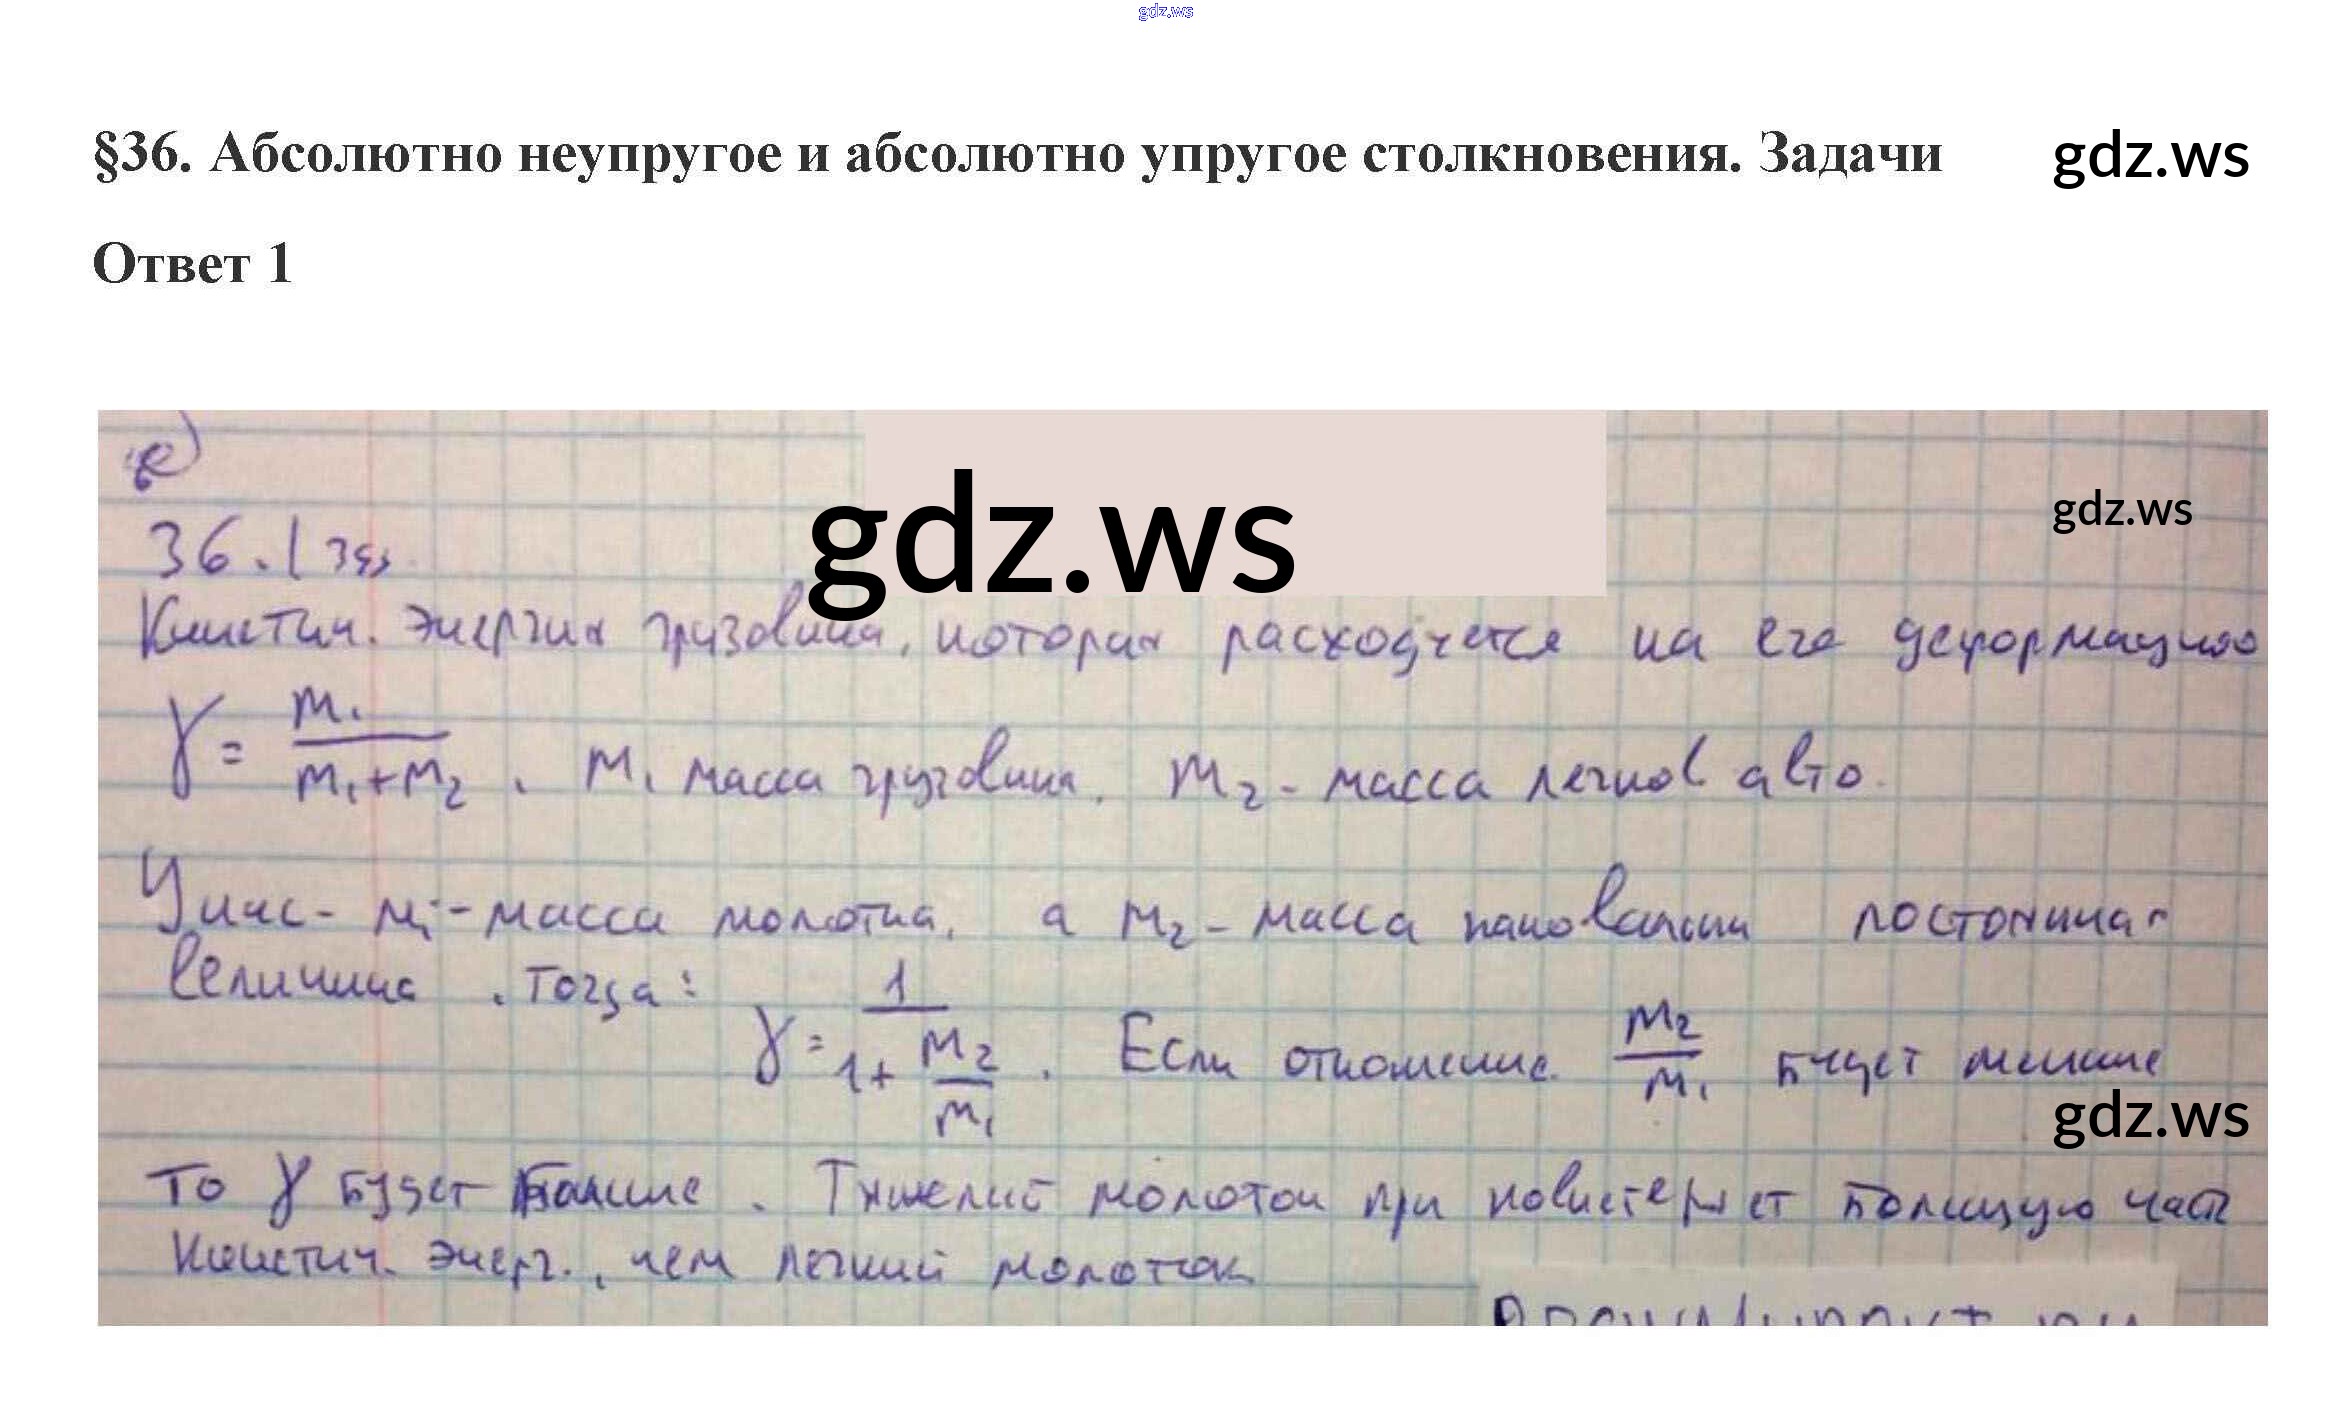 gdz.ws
§36. Абсолютно неупругое и абсолютно упругое столкновения. Задачи gdz.ws
Ответ 1
gdz.ws
gdz.ws
36.1 зад
Кинетич. энергия грузовика, которая расходуется на его деформацию
γ = m₁/(m₁+m₂) . m₁ масса грузовика. m₂ - масса легков авто.
У нас - m₁ - масса молотка, а m₂ - масса наковальни постоянная
величина. Тогда:
γ = 1/(1+m₂/m₁) . Если отношение m₂/m₁ будет меньше
gdz.ws
То γ будет больше. Тяжелий молоток при теряет большую часть
кинетич. энерг., чем легкий молоток